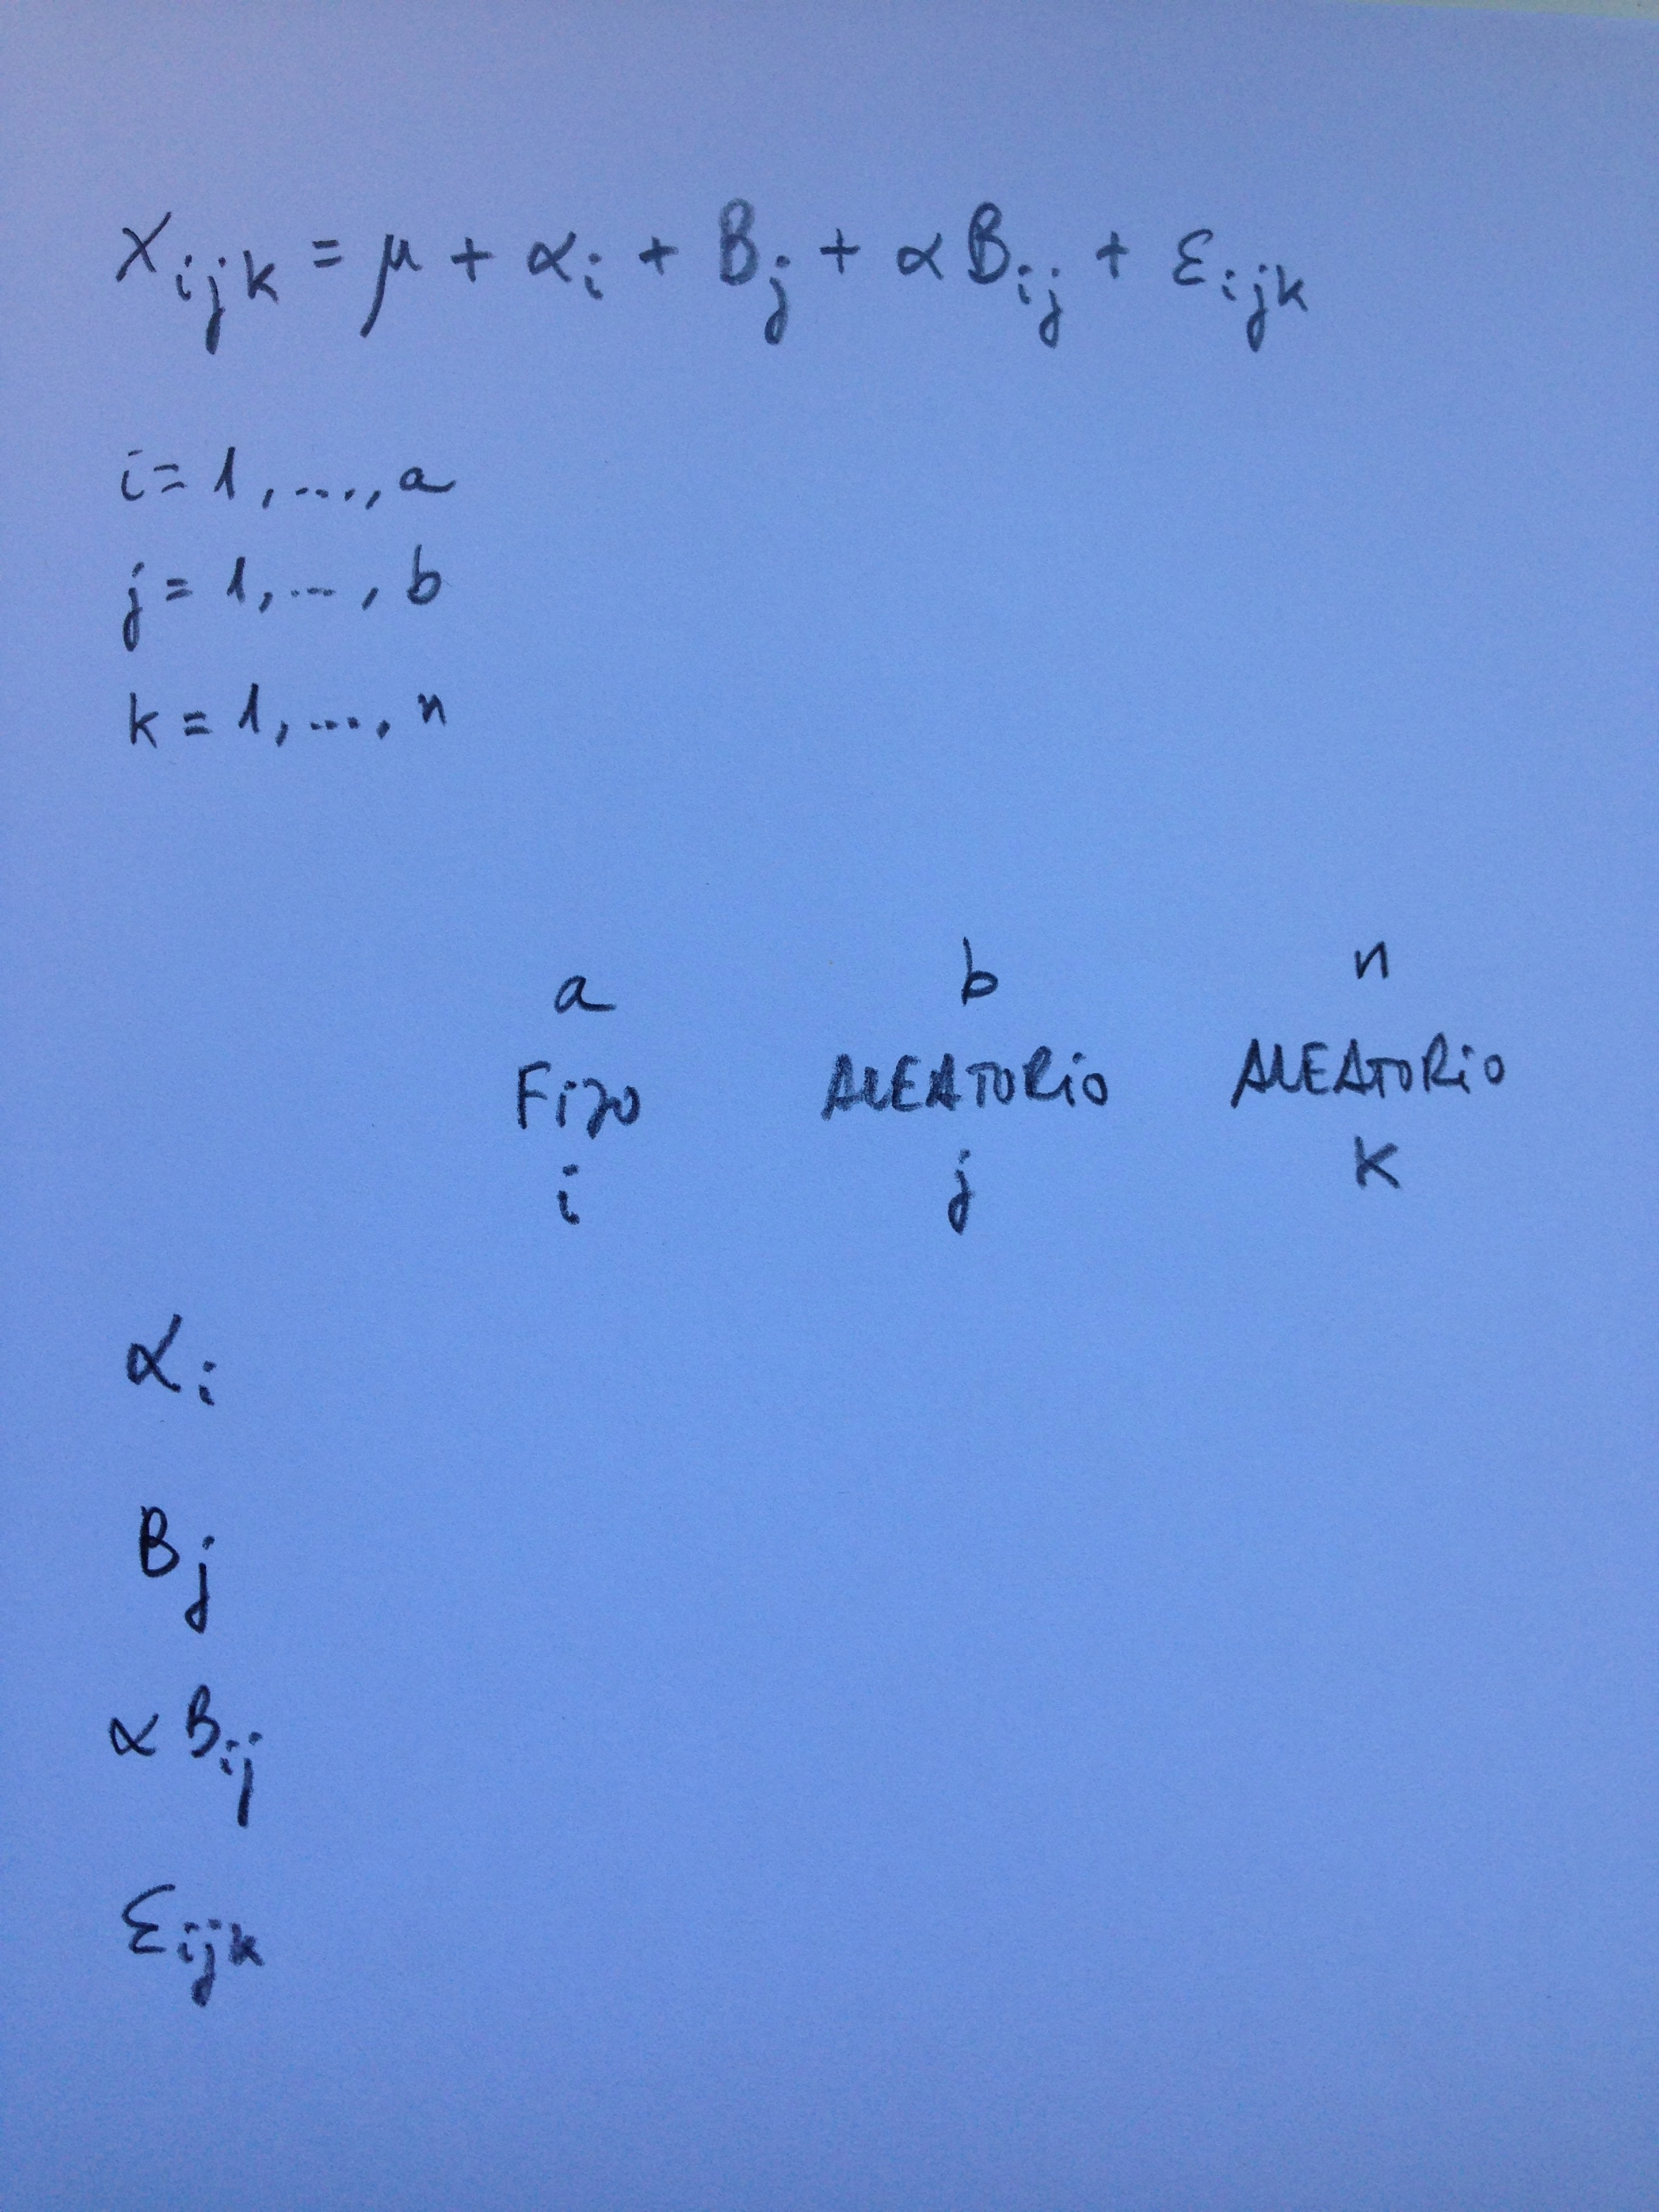 Xijk = μ + αi + Bj + αBij + εijk
i = 1, ...., a
j = 1, ..., b
k = 1, ...., n
a b n
Fijo ALEATORIO ALEATORIO
i j k
αi
Bj
αBij
εijk